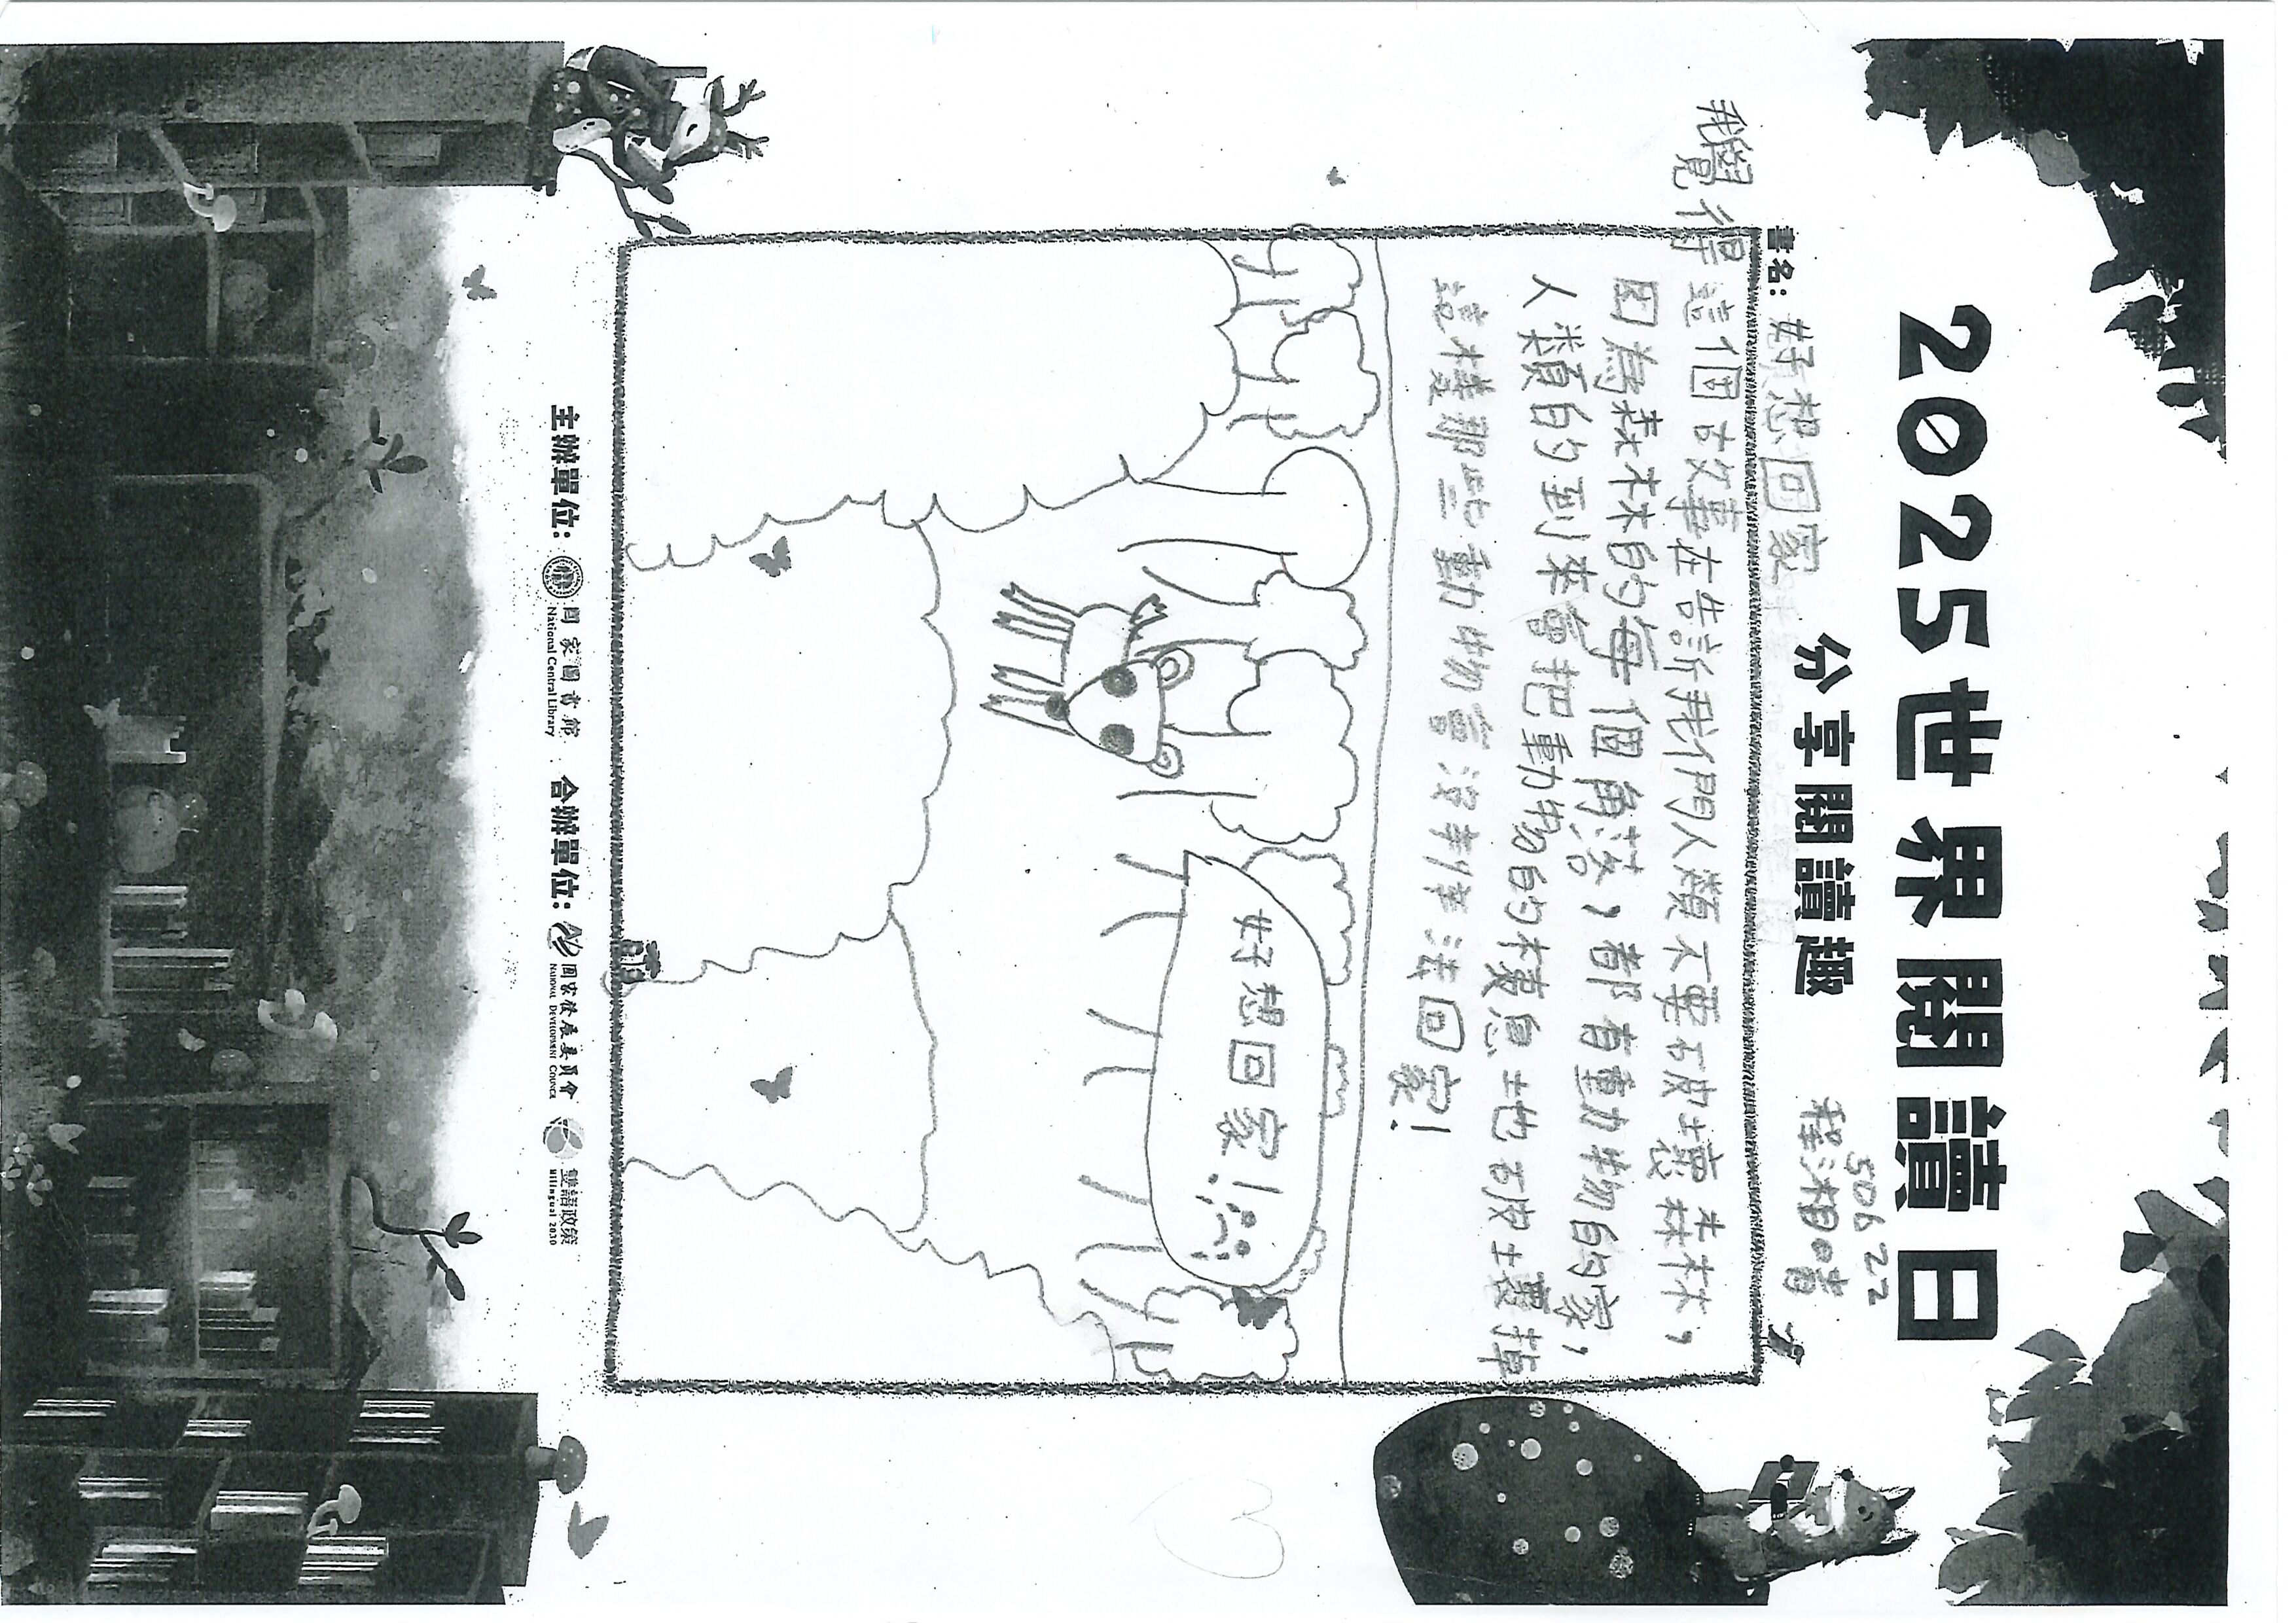 2025世界閱讀日
分享閱讀趣
50622
書名：好想回家
我覺得這個故事在告訴我們人類不要破壞森林，
因為森林的每個角落，都有動物的家，
人類的到來會把動物的棲息地破壞掉
這樣那些動物會沒辦法回家！
好想回家！
主辦單位：
國家圖書館
National Central Library
合辦單位：
國家發展委員會
NATIONAL DEVELOPMENT COUNCIL
雙語政策
Bilingual 2030
3